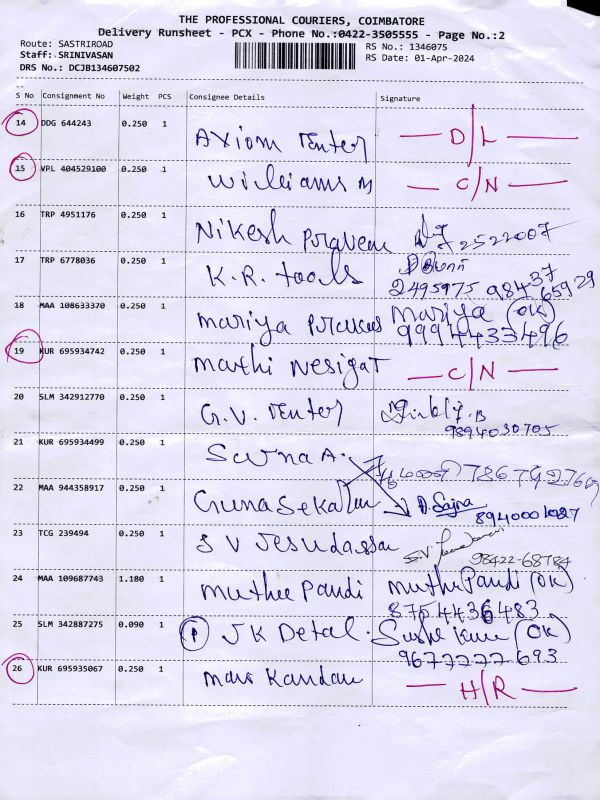 THE PROFESSIONAL COURIERS, COIMBATORE
Delivery Runsheet - PCX - Phone No.:0422-3505555 - Page No.:2
Route: SASTRIROAD RS No.: 1346075
Staff: SRINIVASAN RS Date: 01-Apr-2024
DRS No.: DCJB134607502
S No Consignment No Weight PCS Consignee Details Signature
14 DDG 644243 0.250 1 Axiom enter D/L
15 VPL 404529100 0.250 1 Williams M C/N
16 TRP 4951176 0.250 1 Nikesh Praveen 2522007
17 TRP 6778036 0.250 1 K.R. tools 2495975 98437 65929
18 MAA 108633370 0.250 1 mariya mariya (OK)
9994433496
19 KUR 695934742 0.250 1 mathi C/N
20 SLM 342912770 0.250 1 G.V. enter
9894030705
21 KUR 695934499 0.250 1 Suna A.
22 MAA 944358917 0.250 1 GunaSekaran D. Sajna
8940001027
23 TCG 239494 0.250 1 S V Jesudassan S.V.
98422-68784
24 MAA 109687743 1.180 1 muthu Pandi muthu Pandi (OK)
8754436483
25 SLM 342887275 0.090 1 P JK Detal. (OK)
9677777693
26 KUR 695935067 0.250 1 Kandan H/R